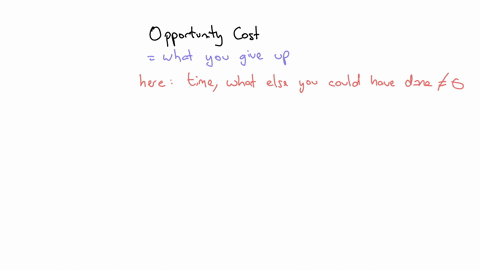 Opportunity Cost
= what you give up
here: time, what else you could have done ≠ 0